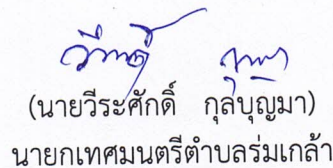 (นายวีระศักดิ์ กุลบุญมา)
นายกเทศมนตรีตำบลร่มเกล้า